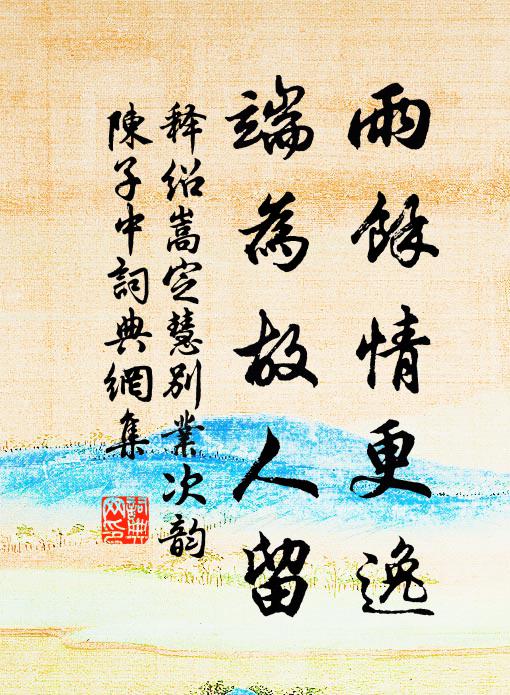 雨餘情更逸
端為故人留
释绍嵩定慧别業次韵
陳子中詞典網集